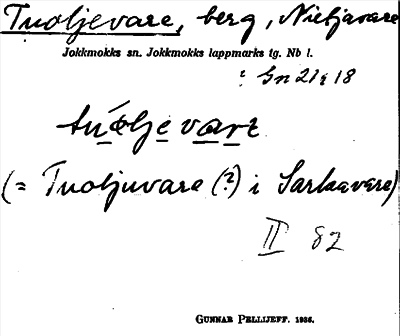 Tuoljevare, berg, Nietjavare
Jokkmokks sn. Jokkmokks lappmarks tg. Nb l.
: Gn 21 i 18
tuolje varε
(= Tuoljuvare (?) i Sarkavare)
II 82
GUNNAR PELLIJEFF. 1936.